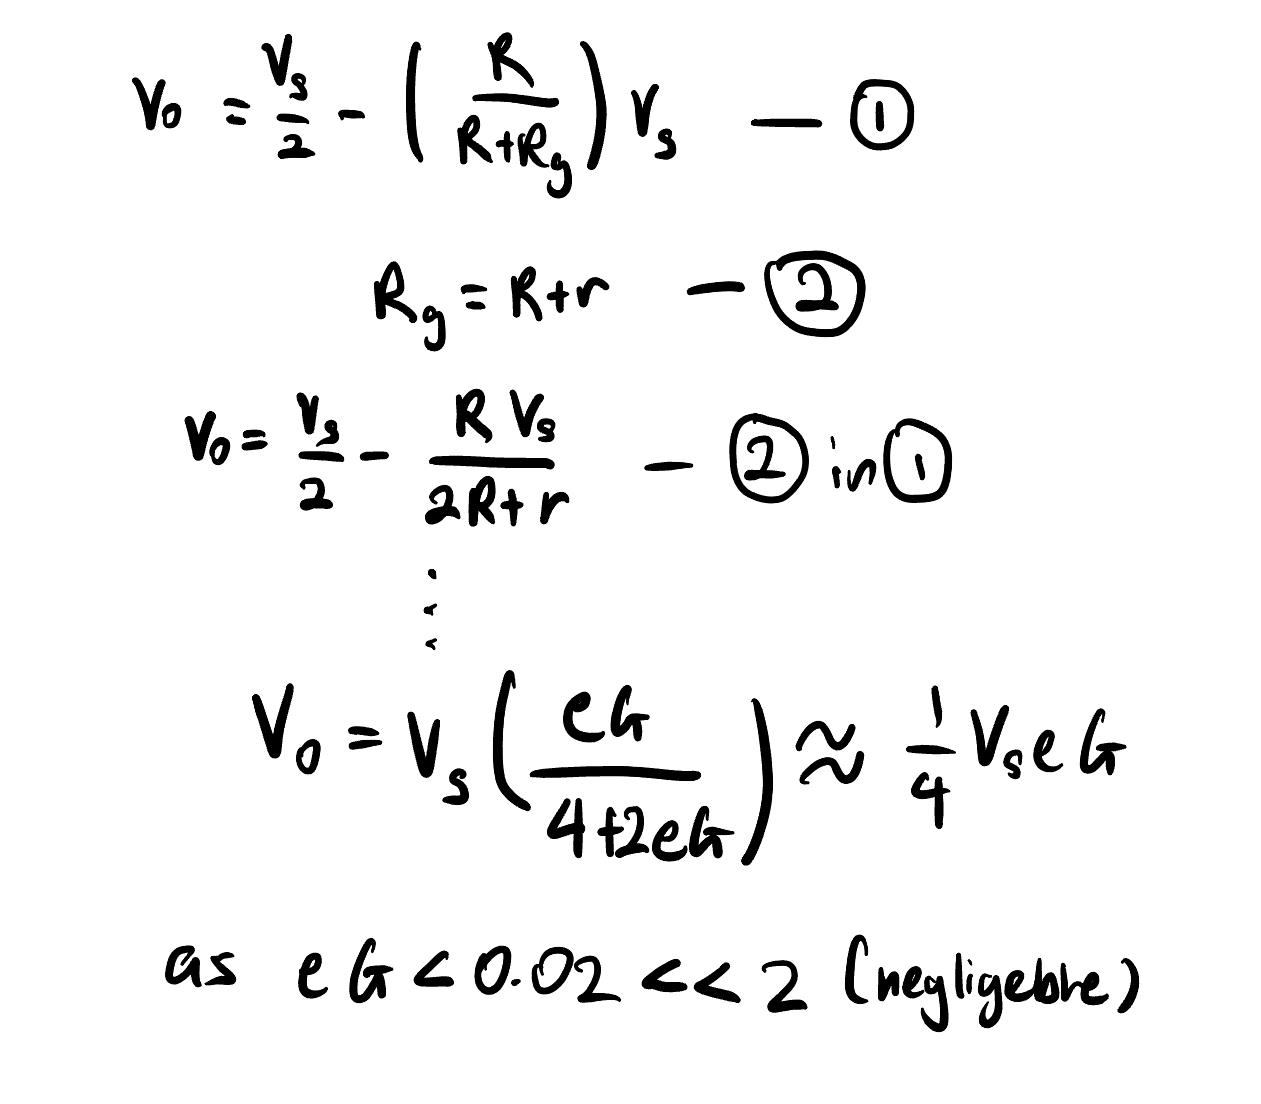 V₀ = Vs/2 - (R/(R+Rg)) Vs — ①
Rg = R+r — ②
V₀ = Vs/2 - R Vs/(2R+r) — ② in ①
⋮
V₀ = Vs (eG/(4+2eG)) ≈ 1/4 Vs e G
as eG < 0.02 << 2 (negligeble)